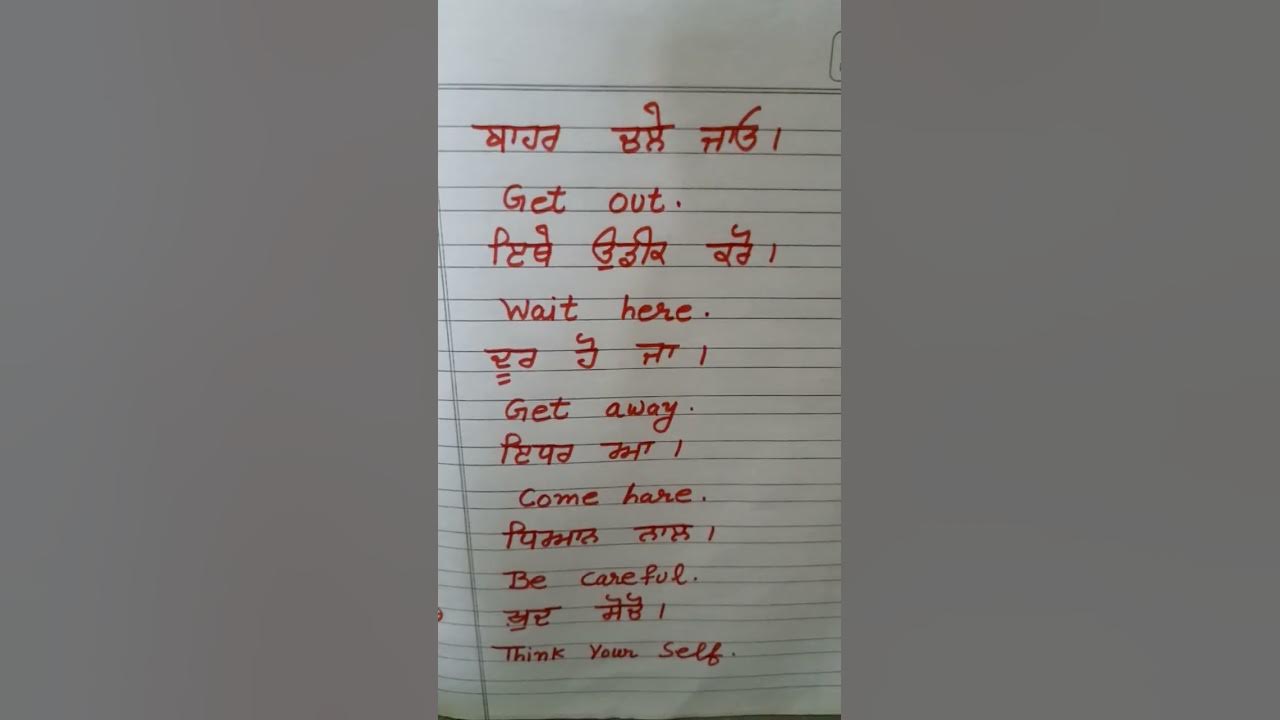 ਬਾਹਰ ਚਲੇ ਜਾਓ।
Get out.
ਇਥੇ ਉਡੀਕ ਕਰੋ।
Wait here.
ਦੂਰ ਹੋ ਜਾ।
Get away.
ਇਧਰ ਆ।
Come hare.
ਧਿਆਨ ਨਾਲ।
Be careful.
ਖ਼ੁਦ ਸੋਚੋ।
Think Your Self.